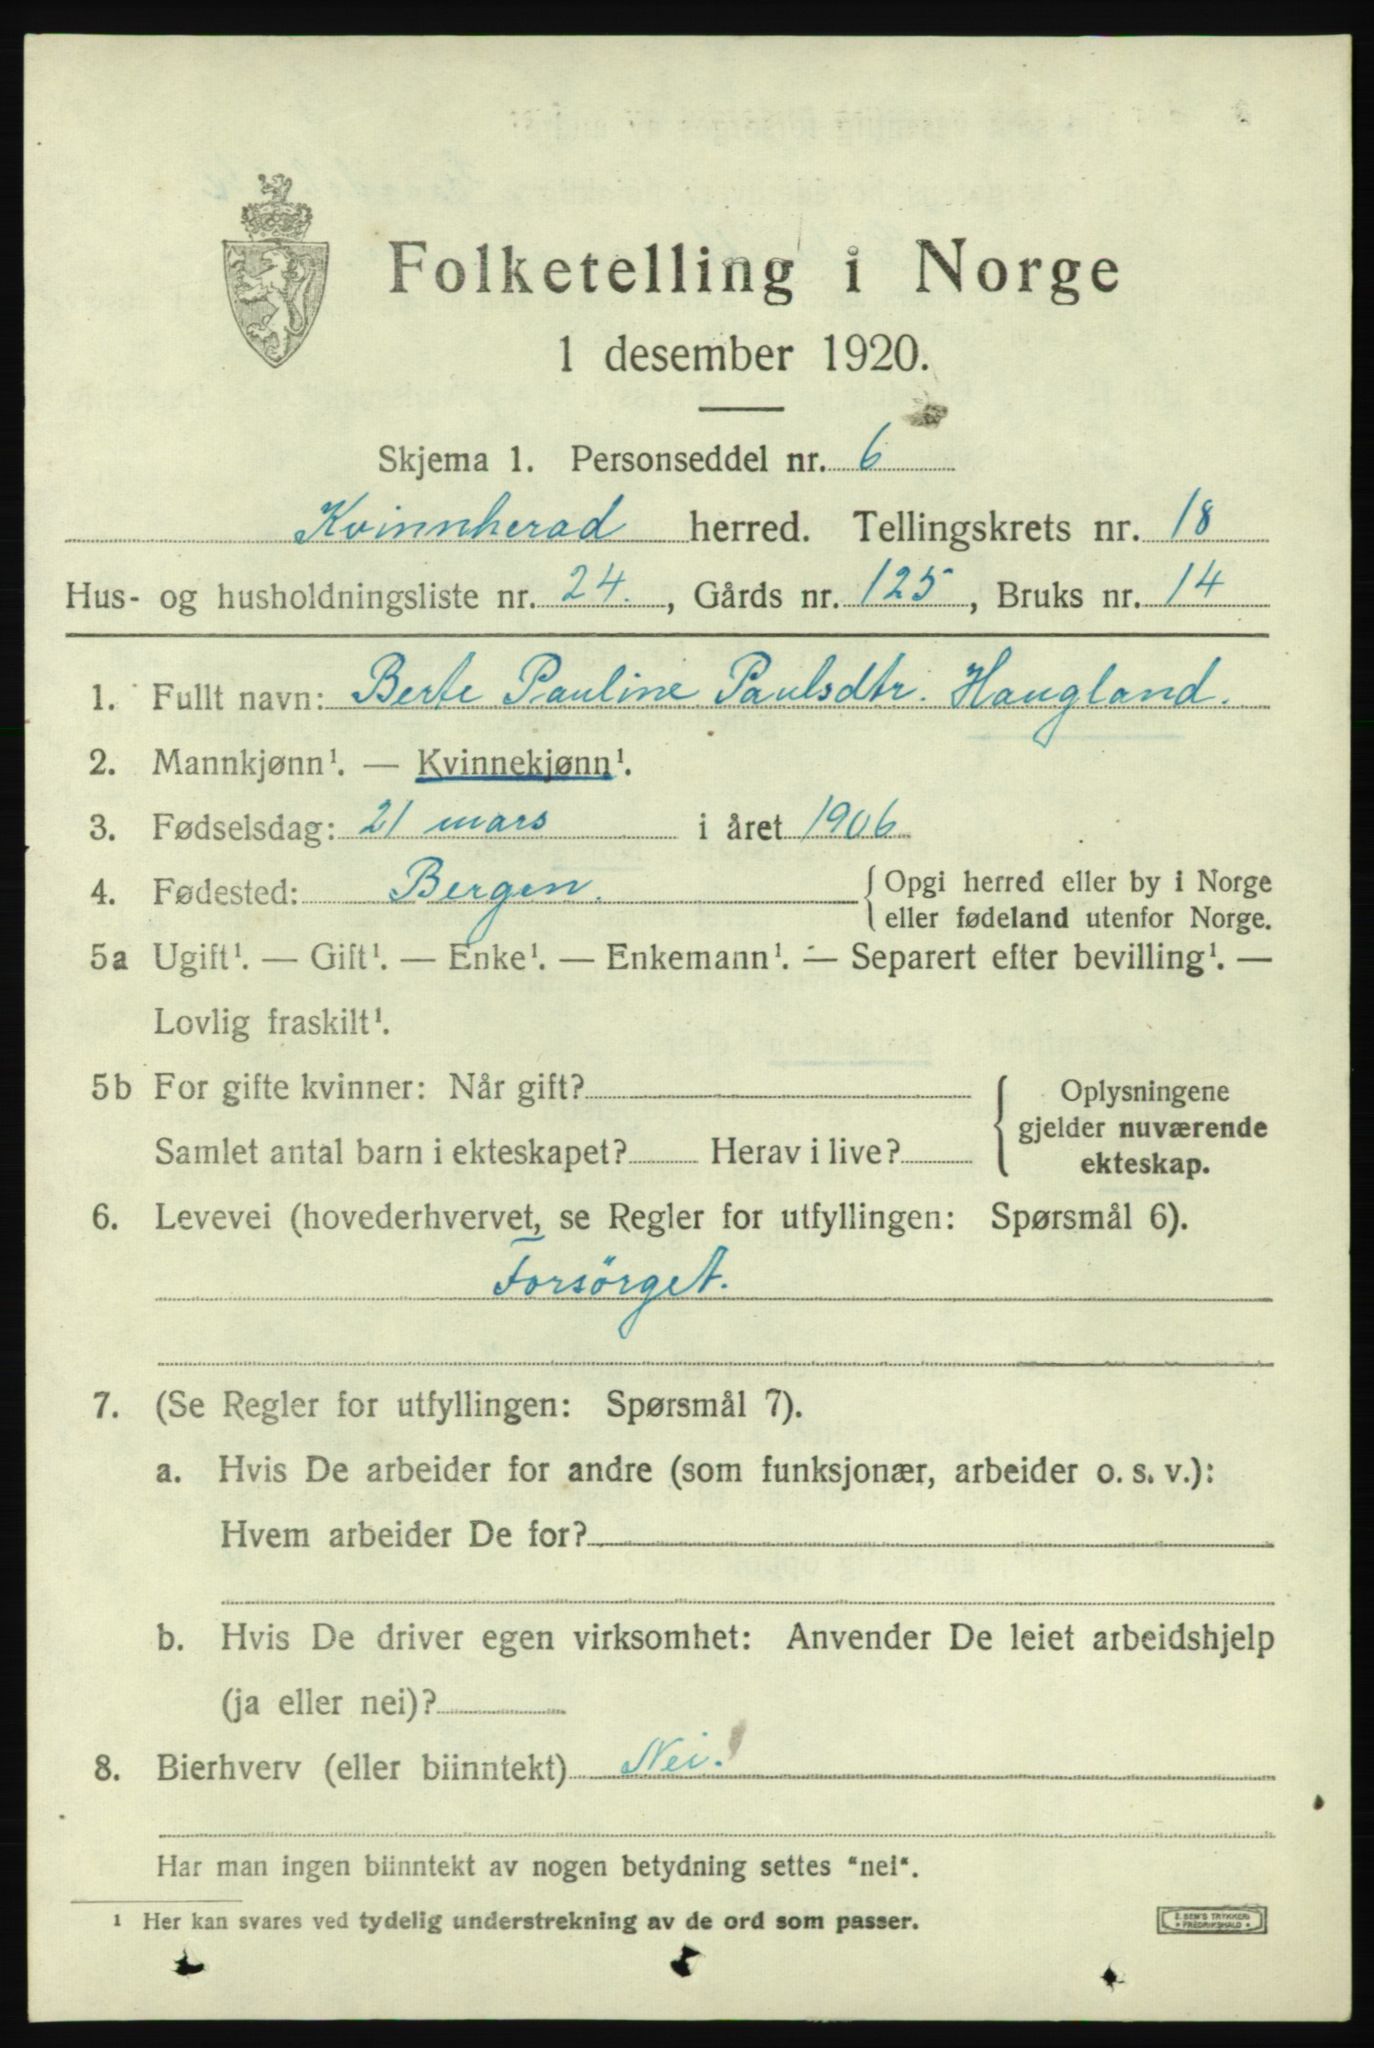 Folketelling i Norge
1 desember 1920.
Skjema 1. Personseddel nr. 6
Kvinnherad herred. Tellingskrets nr. 18
Hus- og husholdningsliste nr. 24., Gårds nr. 125, Bruks nr. 14
1. Fullt navn: Berte Pauline Paulsdtr. Haugland.
2. Mannkjønn¹. — Kvinnekjønn¹.
3. Fødselsdag: 21 mars i året 1906
4. Fødested: Bergen. { Opgi herred eller by i Norge
eller fødeland utenfor Norge.
5a Ugift¹. — Gift¹. — Enke¹. — Enkemann¹. — Separert efter bevilling¹. —
Lovlig fraskilt¹.
5b For gifte kvinner: Når gift?
Samlet antal barn i ekteskapet? Herav i live?
{ Oplysningene
gjelder nuværende
ekteskap.
6. Levevei (hovederhvervet, se Regler for utfyllingen: Spørsmål 6).
Forsörget.
7. (Se Regler for utfyllingen: Spørsmål 7).
a. Hvis De arbeider for andre (som funksjonær, arbeider o. s. v.):
Hvem arbeider De for?
b. Hvis De driver egen virksomhet: Anvender De leiet arbeidshjelp
(ja eller nei)?
8. Bierhverv (eller biinntekt) Nei.
Har man ingen biinntekt av nogen betydning settes "nei".
¹ Her kan svares ved tydelig understrekning av de ord som passer.
TRYKKERI
FREDRIKSHALD